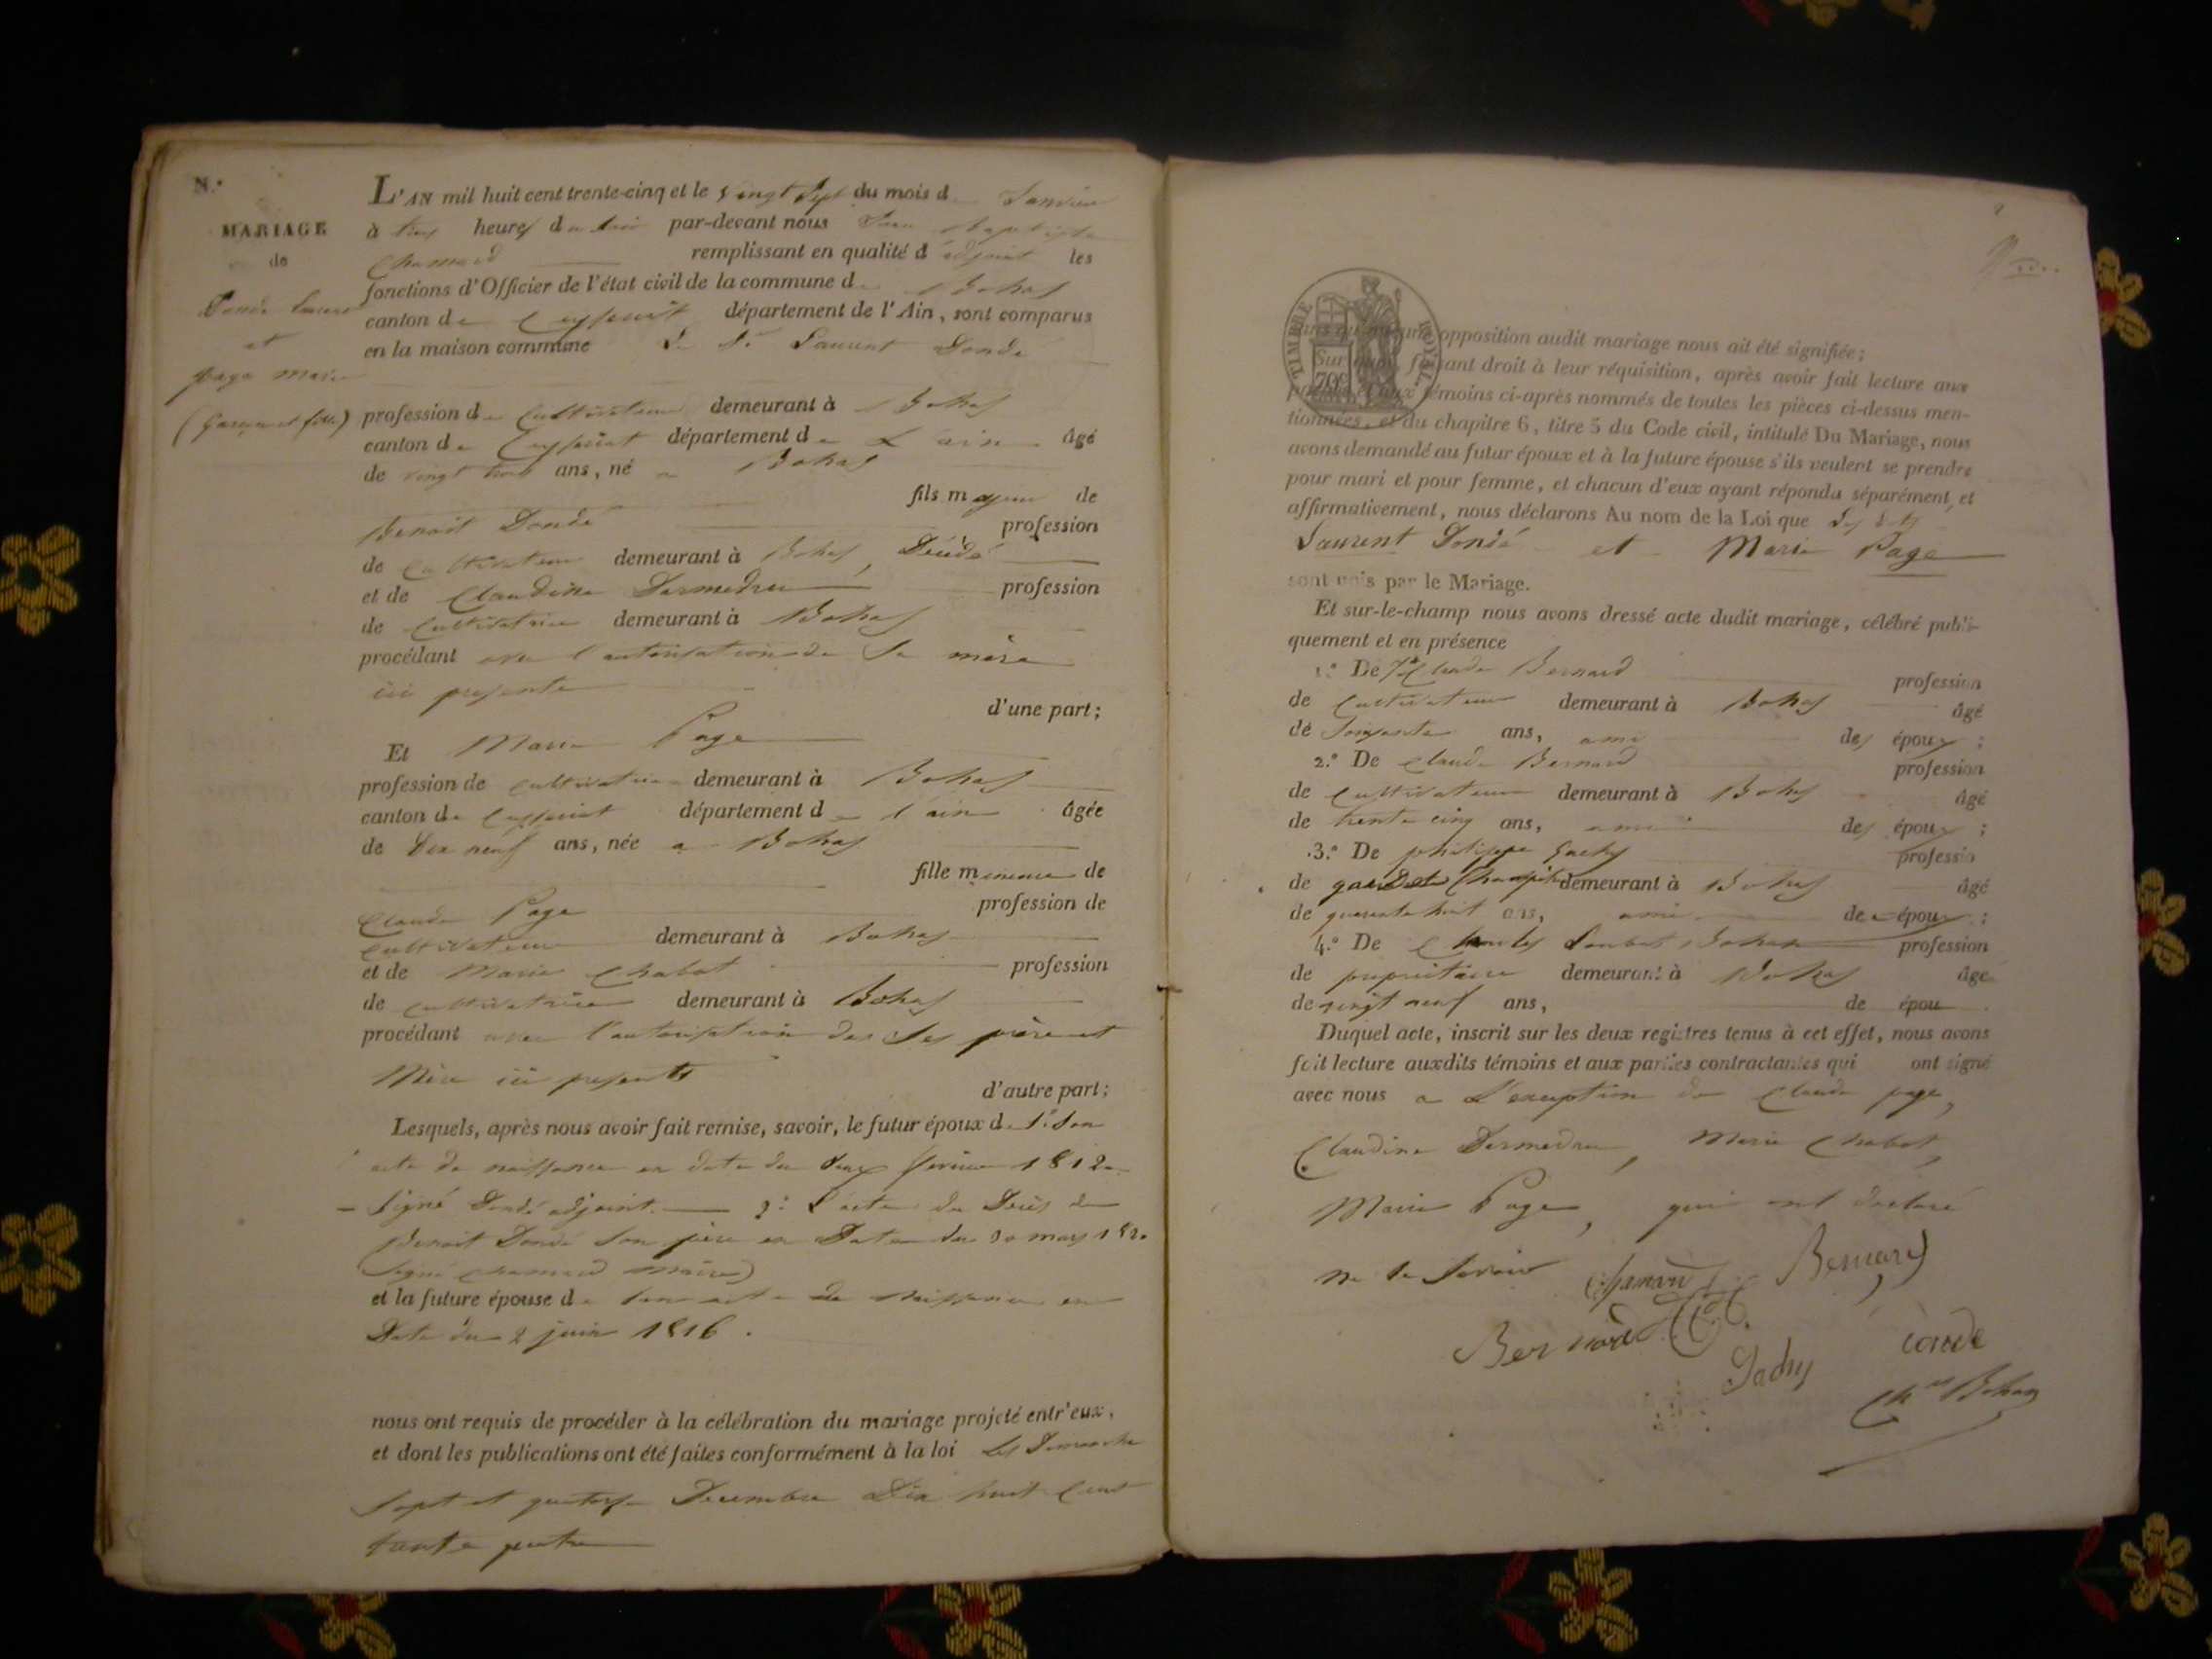 N.°
L'AN mil huit cent trente-cinq et le vingt sept du mois de Janvier
MARIAGE
à trois heures du soir par-devant nous Jean Baptiste
de
Chamard remplissant en qualité d'adjoint les
fonctions d'Officier de l'état civil de la commune de Bohas
Dondé Laurent
canton de Ceyseriat département de l'Ain, sont comparus
et
en la maison commune Laurent Dondé
page marie
(garçon et fille)
profession de Cultivateur demeurant à Bohas
canton de Ceyseriat département de L'ain âgé
de vingt trois ans, né a Bohas
fils majeur de
Benoit Dondé profession
de cultivateur demeurant à Bohas, Décédé
et de Claudine Darmedru profession
de Cultivatrice demeurant à Bohas
procédant avec l'autorisation de Sa mère
ici presente
d'une part;
Et Marie Page
profession de cultivatrice demeurant à Bohas
canton de Ceyseriat département de l'ain âgée
de Dix neuf ans, née a Bohas
fille mineure de
Claude Page profession de
cultivateur demeurant à Bohas
et de Marie Chabot profession
de cultivatrice demeurant à Bohas
procédant avec l'autorisation des Ses père et
Mère ici presents
d'autre part;
Lesquels, après nous avoir fait remise, savoir, le futur époux de 1° Son
acte de naissance en date du deux fevrier 1812
Signé Dondé adjoint. 2° L'acte de Décès de
Benoit Dondé Son père en Date du mars
Signé Chamard maire
et la future épouse de Son acte de Naissance en
Date du 2 juin 1816.
nous ont requis de procéder à la célébration du mariage projeté entr'eux,
et dont les publications ont été faites conformément à la loi Les Dimanche
Sept et quatorze Decembre Dix huit Cent
trente quatre
TIMBRE ROYAL
opposition audit mariage nous ait été signifiée;
Sur quoi, faisant droit à leur réquisition, après avoir fait lecture aux
parties et aux témoins ci-après nommés de toutes les pièces ci-dessus men-
tionnées, et du chapitre 6, titre 5 du Code civil, intitulé Du Mariage, nous
avons demandé au futur époux et à la future épouse s'ils veulent se prendre
pour mari et pour femme, et chacun d'eux ayant répondu séparément et
affirmativement, nous déclarons Au nom de la Loi que
Laurent Dondé et Marie Page
sont unis par le Mariage.
Et sur-le-champ nous avons dressé acte dudit mariage, célébré publi-
quement et en présence
1.° De Claude Bernard profession
de Cultivateur demeurant à Bohas âgé
de Soixante ans, ami des époux ;
2.° De Claude Bernard profession
de Cultivateur demeurant à Bohas âgé
de trente cinq ans, ami des époux ;
3.° De philippe Gachy professio
de garde Champetre demeurant à Bohas âgé
de quarante huit ans, ami de époux ;
4.° De Charles Bohan profession
de propriétaire demeurant à Bohas âgé
de vingt neuf ans, de épou
Duquel acte, inscrit sur les deux registres tenus à cet effet, nous avons
fait lecture auxdits témoins et aux parties contractantes qui ont signé
avec nous a L'exception de Claude page,
Claudine Darmedru, Marie Chabot,
Marie Page, qui ont declaré
ne le Savoir Chamard Bernard
Bernard
Gachy
Bohan